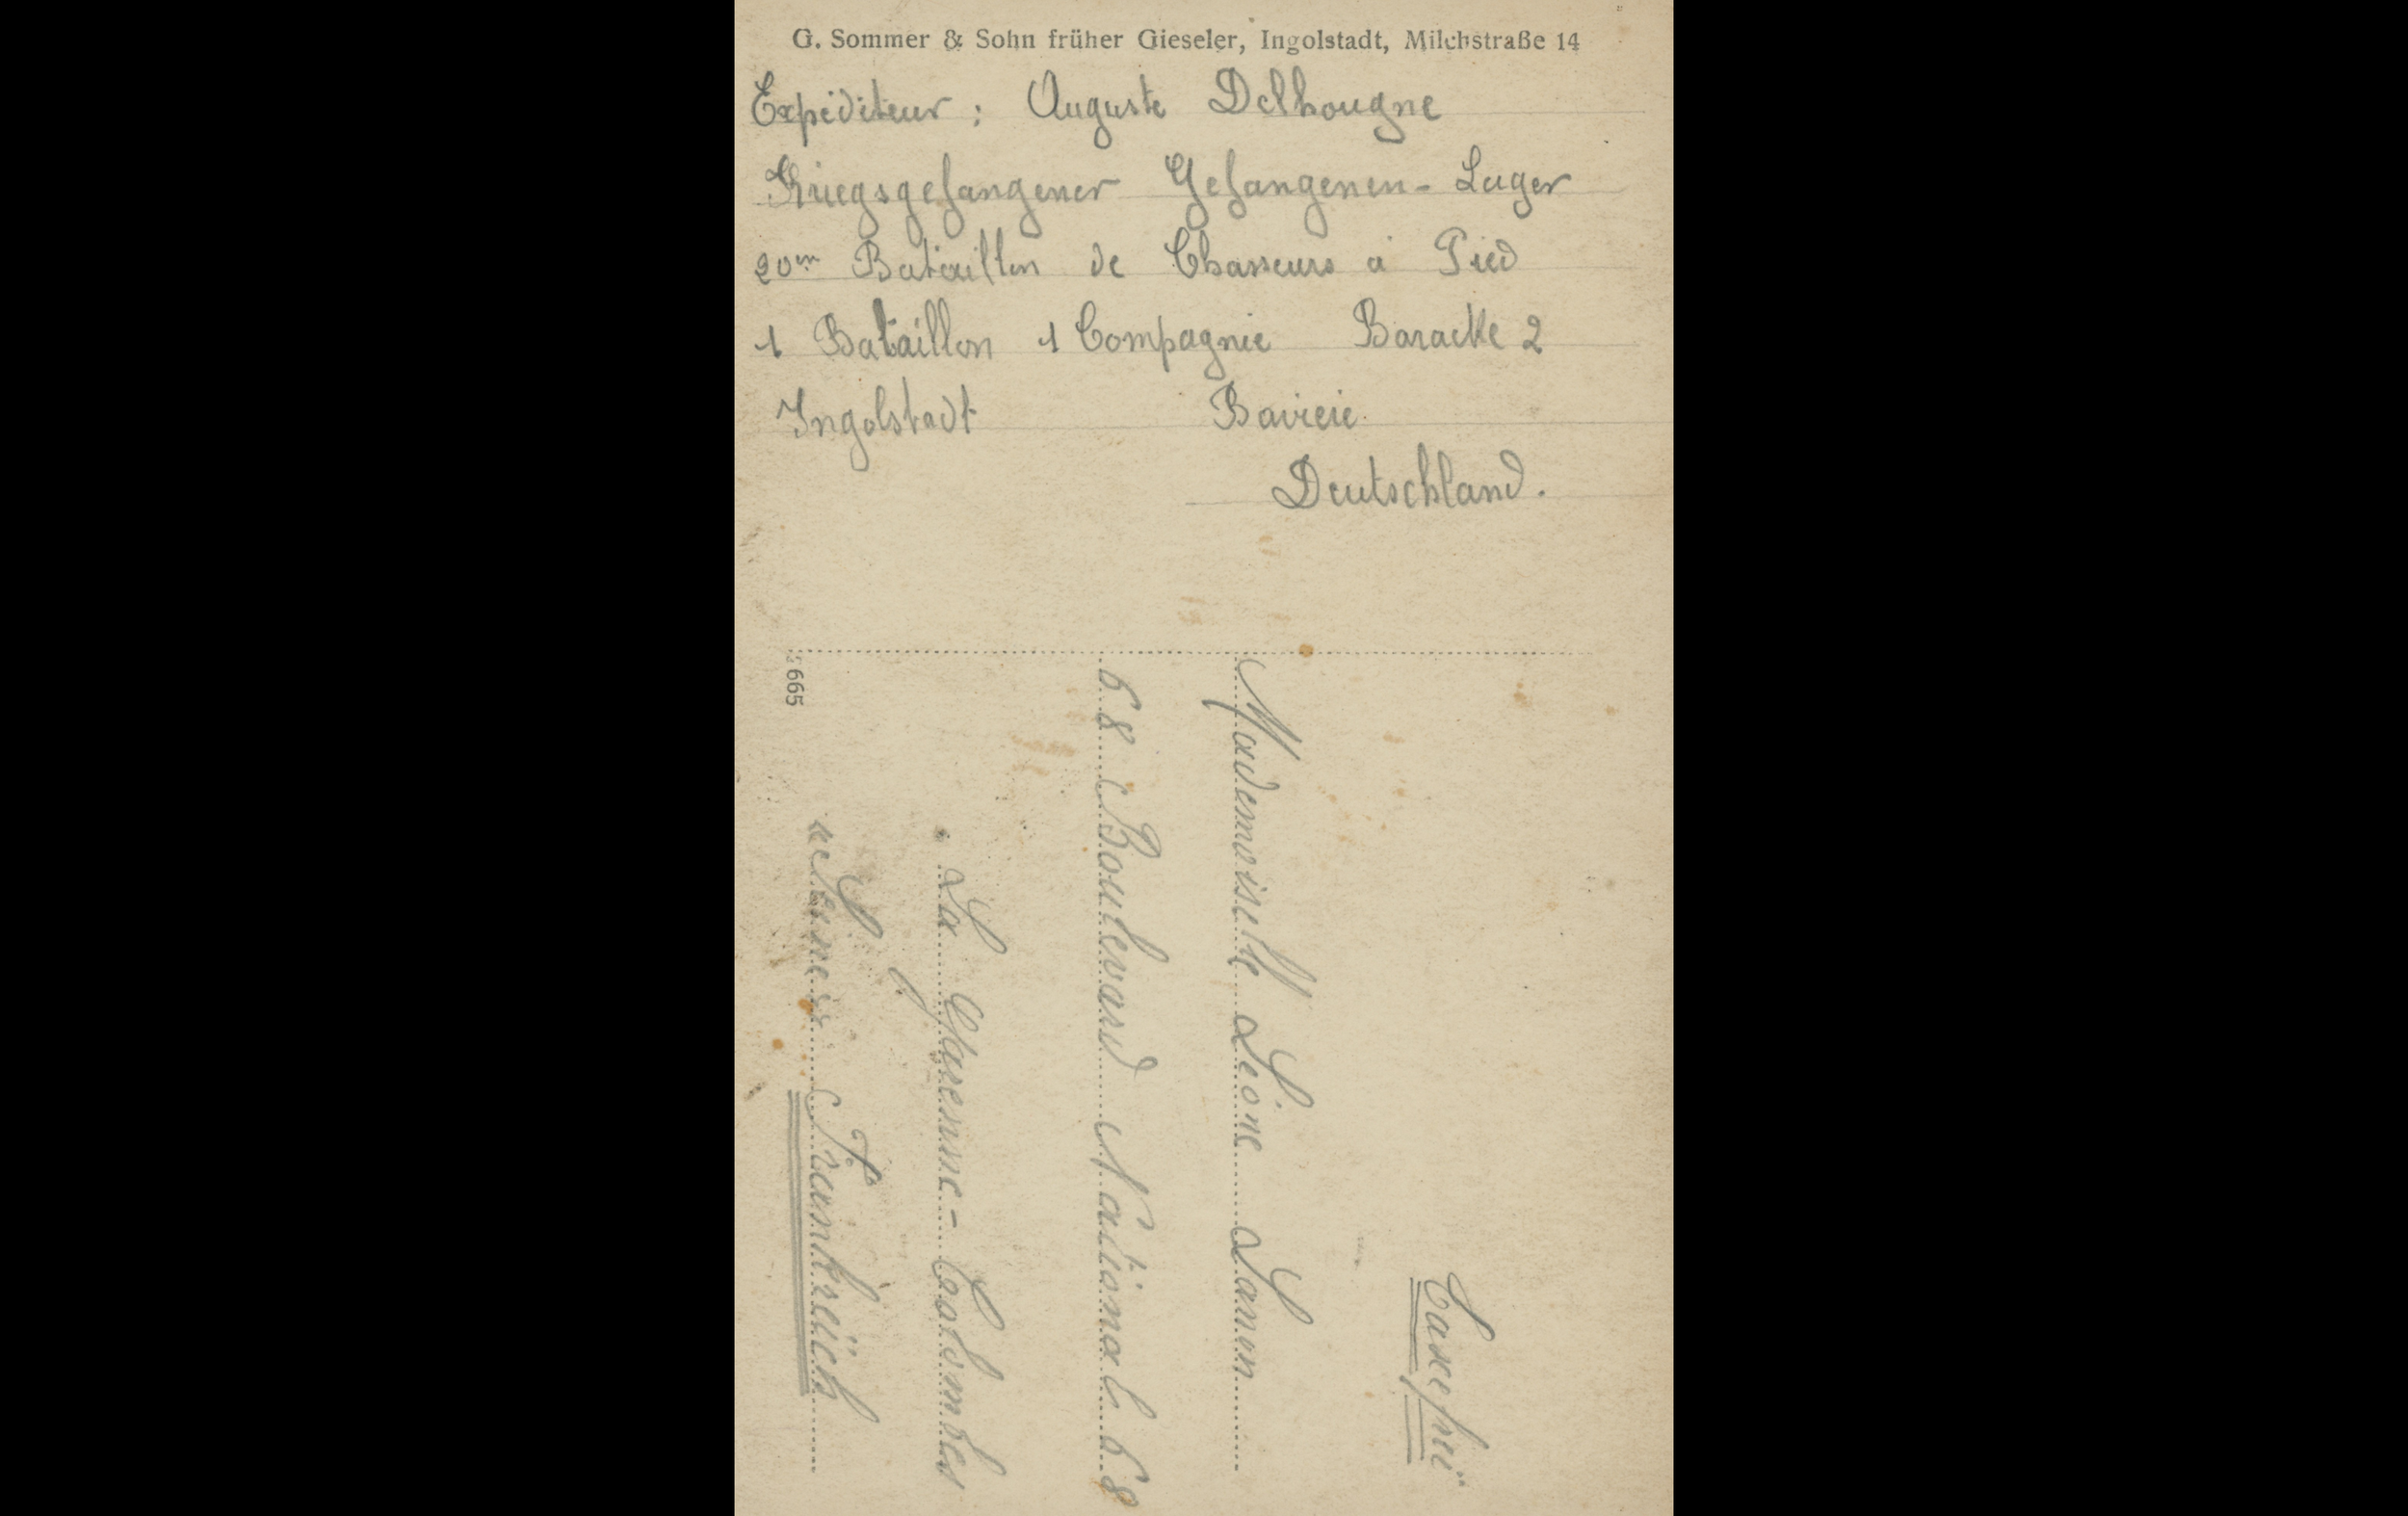 G. Sommer & Sohn früher Gieseler, Ingolstadt, Milchstraße 14
Expéditeur : Auguste Delhougne
Kriegsgefangener Gefangenen - Lager
20em Bataillon de Chasseurs à Pied
1 Bataillon 1 Compagnie Baracke 2
Ingolstadt Bavière
Deutschland.
Taxefreï
Mademoiselle Léone Lanin
68 Boulevard National 68
La Garenne - Colombes
Frankreïch
665